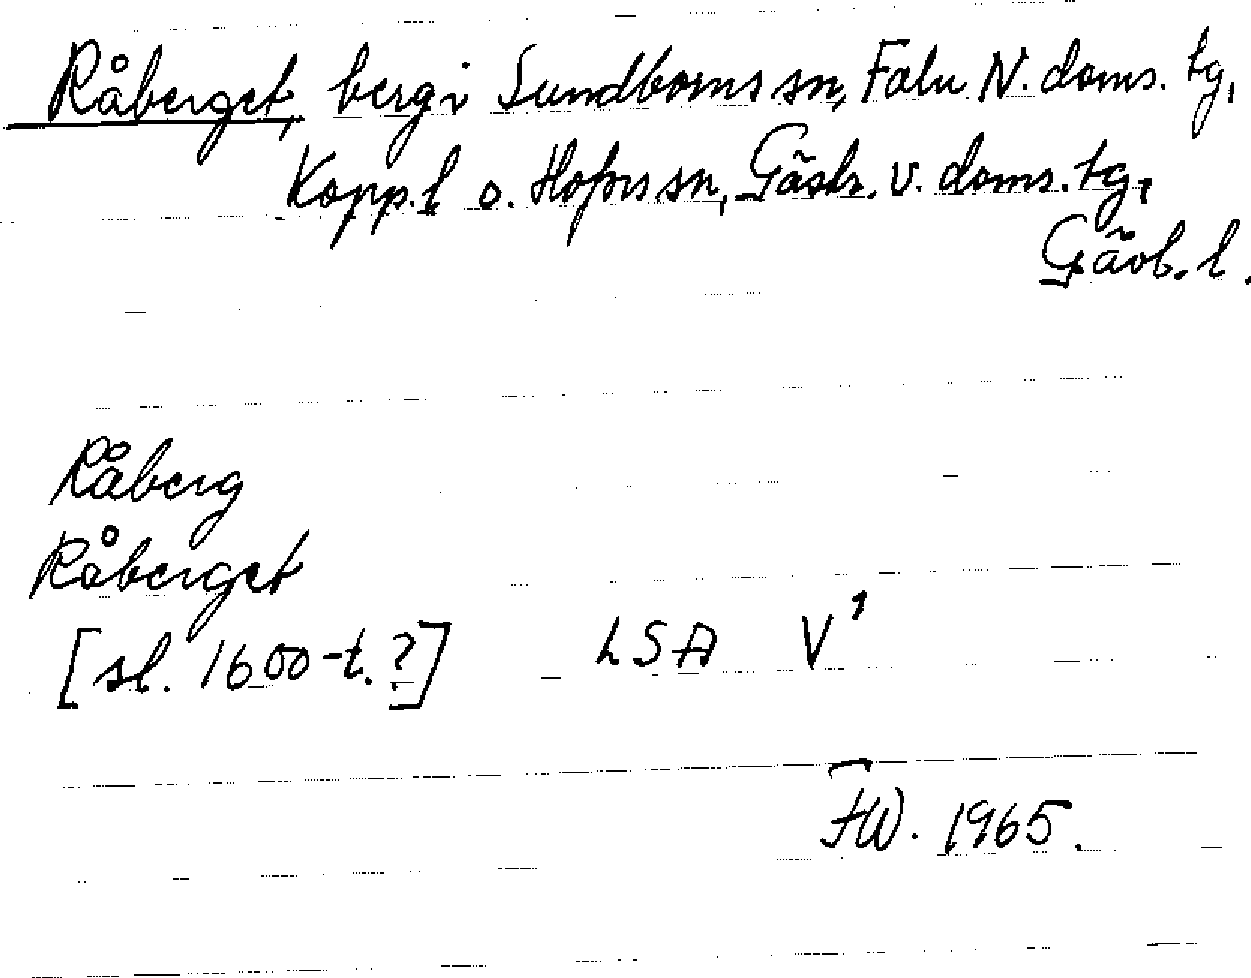 Råberget, berg i Sundborns sn, Falu N. doms. tg,
Kopp. l o. Hofors sn, Gästr. v. doms. tg,
Gävb. l.
Råberg
Råberget
[sl. 1600-t.?] LSA V¹
FW. 1965.